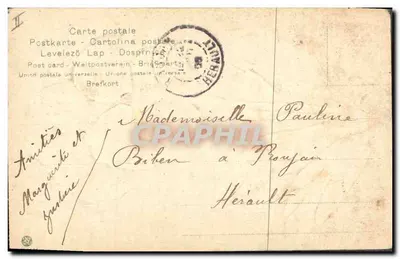 II
Carte postale
Postkarte - Cartolina postale
Levelező Lap - Dopisn
Post card - Weltpostverein - Briefkaart
Union postale universelle - Unione postale universale
Brefkort
HERAULT
CPAPHIL
Mademoiselle Pauline
Biben à Roujan
Hérault
Amitiés
Marguerite et